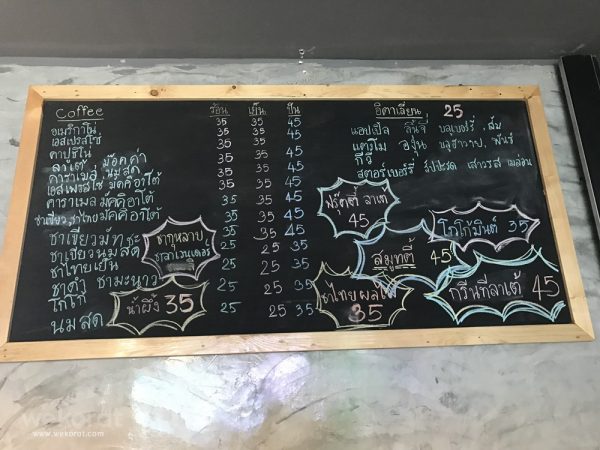 Coffee ร้อน เย็น ปั่น
อเมริกาโน่ 35 35 45
เอสเปรสโซ่ 35 35 45
คาปูชิโน่ 35 35 45
ลาเต้ ม๊อคค่า 35 35 45
คาราเมล นมสด 35 35 45
เอสเปรสโซ่ มัคคิอาโต้ 35 35 45
คาราเมล มัคคิอาโต้ 35 35 45
ชาเขียว,ชาไทย มัคคิอาโต้ 35 35 45
ชาเขียวมัทฉะ 35 35 45
ชาเขียวนมสด 25 25 35
ชาไทยเย็น
ชาดำ ชามะนาว 25 25 35
โกโก้ 25 25 35
นมสด 25 25 35
ชากุหลาบ
ชาลาเวนเดอร์
น้ำผึ้ง 35
อิตาเลี่ยน 25
แอปเปิ้ล ลิ้นจี่ บลูเบอร์รี่ ,ส้ม
แคนตาโลป องุ่น บลูฮาวาย, พันช์
กีวี
สตอร์เบอร์รี่ สับปะรด เสาวรส เมล่อน
ฟรุ๊ตตี้ ลาเต้
45
โกโก้มิ้นต์ 35
สมูทตี้ 45
ชาไทยผลไม้
35
กรีนทีลาเต้ 45
www.wekorat.com